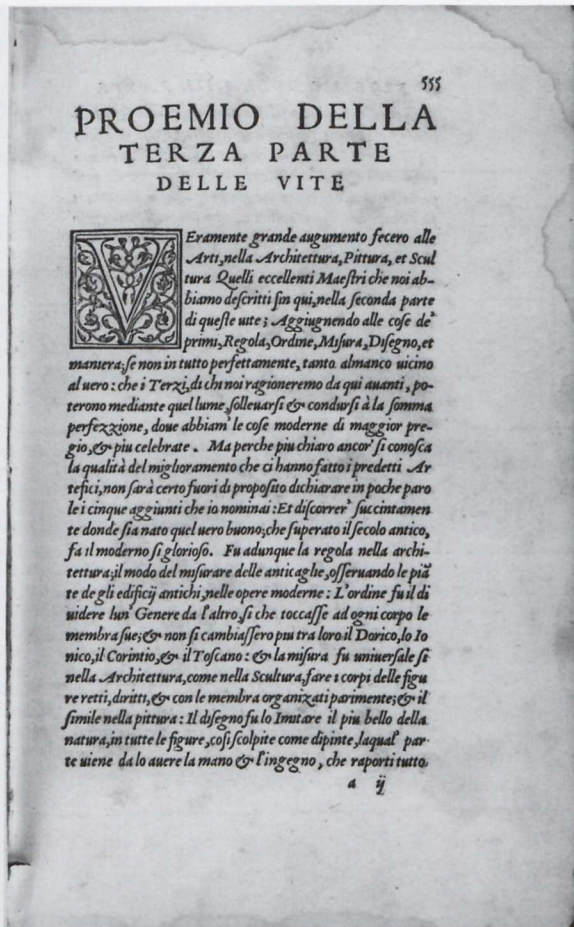 555
PROEMIO DELLA
TERZA PARTE
DELLE VITE
VEramente grande augumento fecero alle
Arti, nella Architettura, Pittura, et Scul
tura Quelli eccellenti Maeſtri che noi ab-
biamo deſcritti ſin qui, nella ſeconda parte
di queſte uite; Aggiugnendo alle coſe de'
primi, Regola, Ordine, Miſura, Diſegno, et
maniera; ſe non in tutto perfettamente, tanto almanco uicino
al uero: che i Terzi, di chi noi ragioneremo da qui auanti, po-
terono mediante quel lume, ſolleuarſi & condurſi à la ſomma
perfezzione, doue abbiam' le coſe moderne di maggior pre-
gio, & piu celebrate. Ma perche piu chiaro ancor' ſi conoſca
la qualità del miglioramento che ci hanno fatto i predetti Ar
tefici, non ſarà certo fuori di propoſito dichiarare in poche paro
le i cinque aggiunti che io nominai: Et diſcorrer' ſuccintamen
te donde ſia nato quel uero buono; che ſuperato il ſecolo antico,
fa il moderno ſi glorioſo. Fu adunque la regola nella archi-
tettura; il modo del miſurare delle anticaglie, oſſeruando le piā
te de gli edificij antichi, nelle opere moderne: L'ordine fu il di
uidere lun' Genere da l'altro, ſi che toccaſſe ad ogni corpo le
membra ſue; & non ſi cambiaſſero piu tra loro il Dorico, lo Io
nico, il Corintio, & il Toſcano: & la miſura fu uniuerſale ſi
nella Architettura, come nella Scultura, fare i corpi delle figu
re retti, diritti, & con le membra organizati parimente; & il
ſimile nella pittura: Il diſegno fu lo Imitare il piu bello della
natura, in tutte le figure, coſi ſcolpite come dipinte, laqual' par-
te uiene da lo auere la mano & l'ingegno, che raporti tutto
a ij